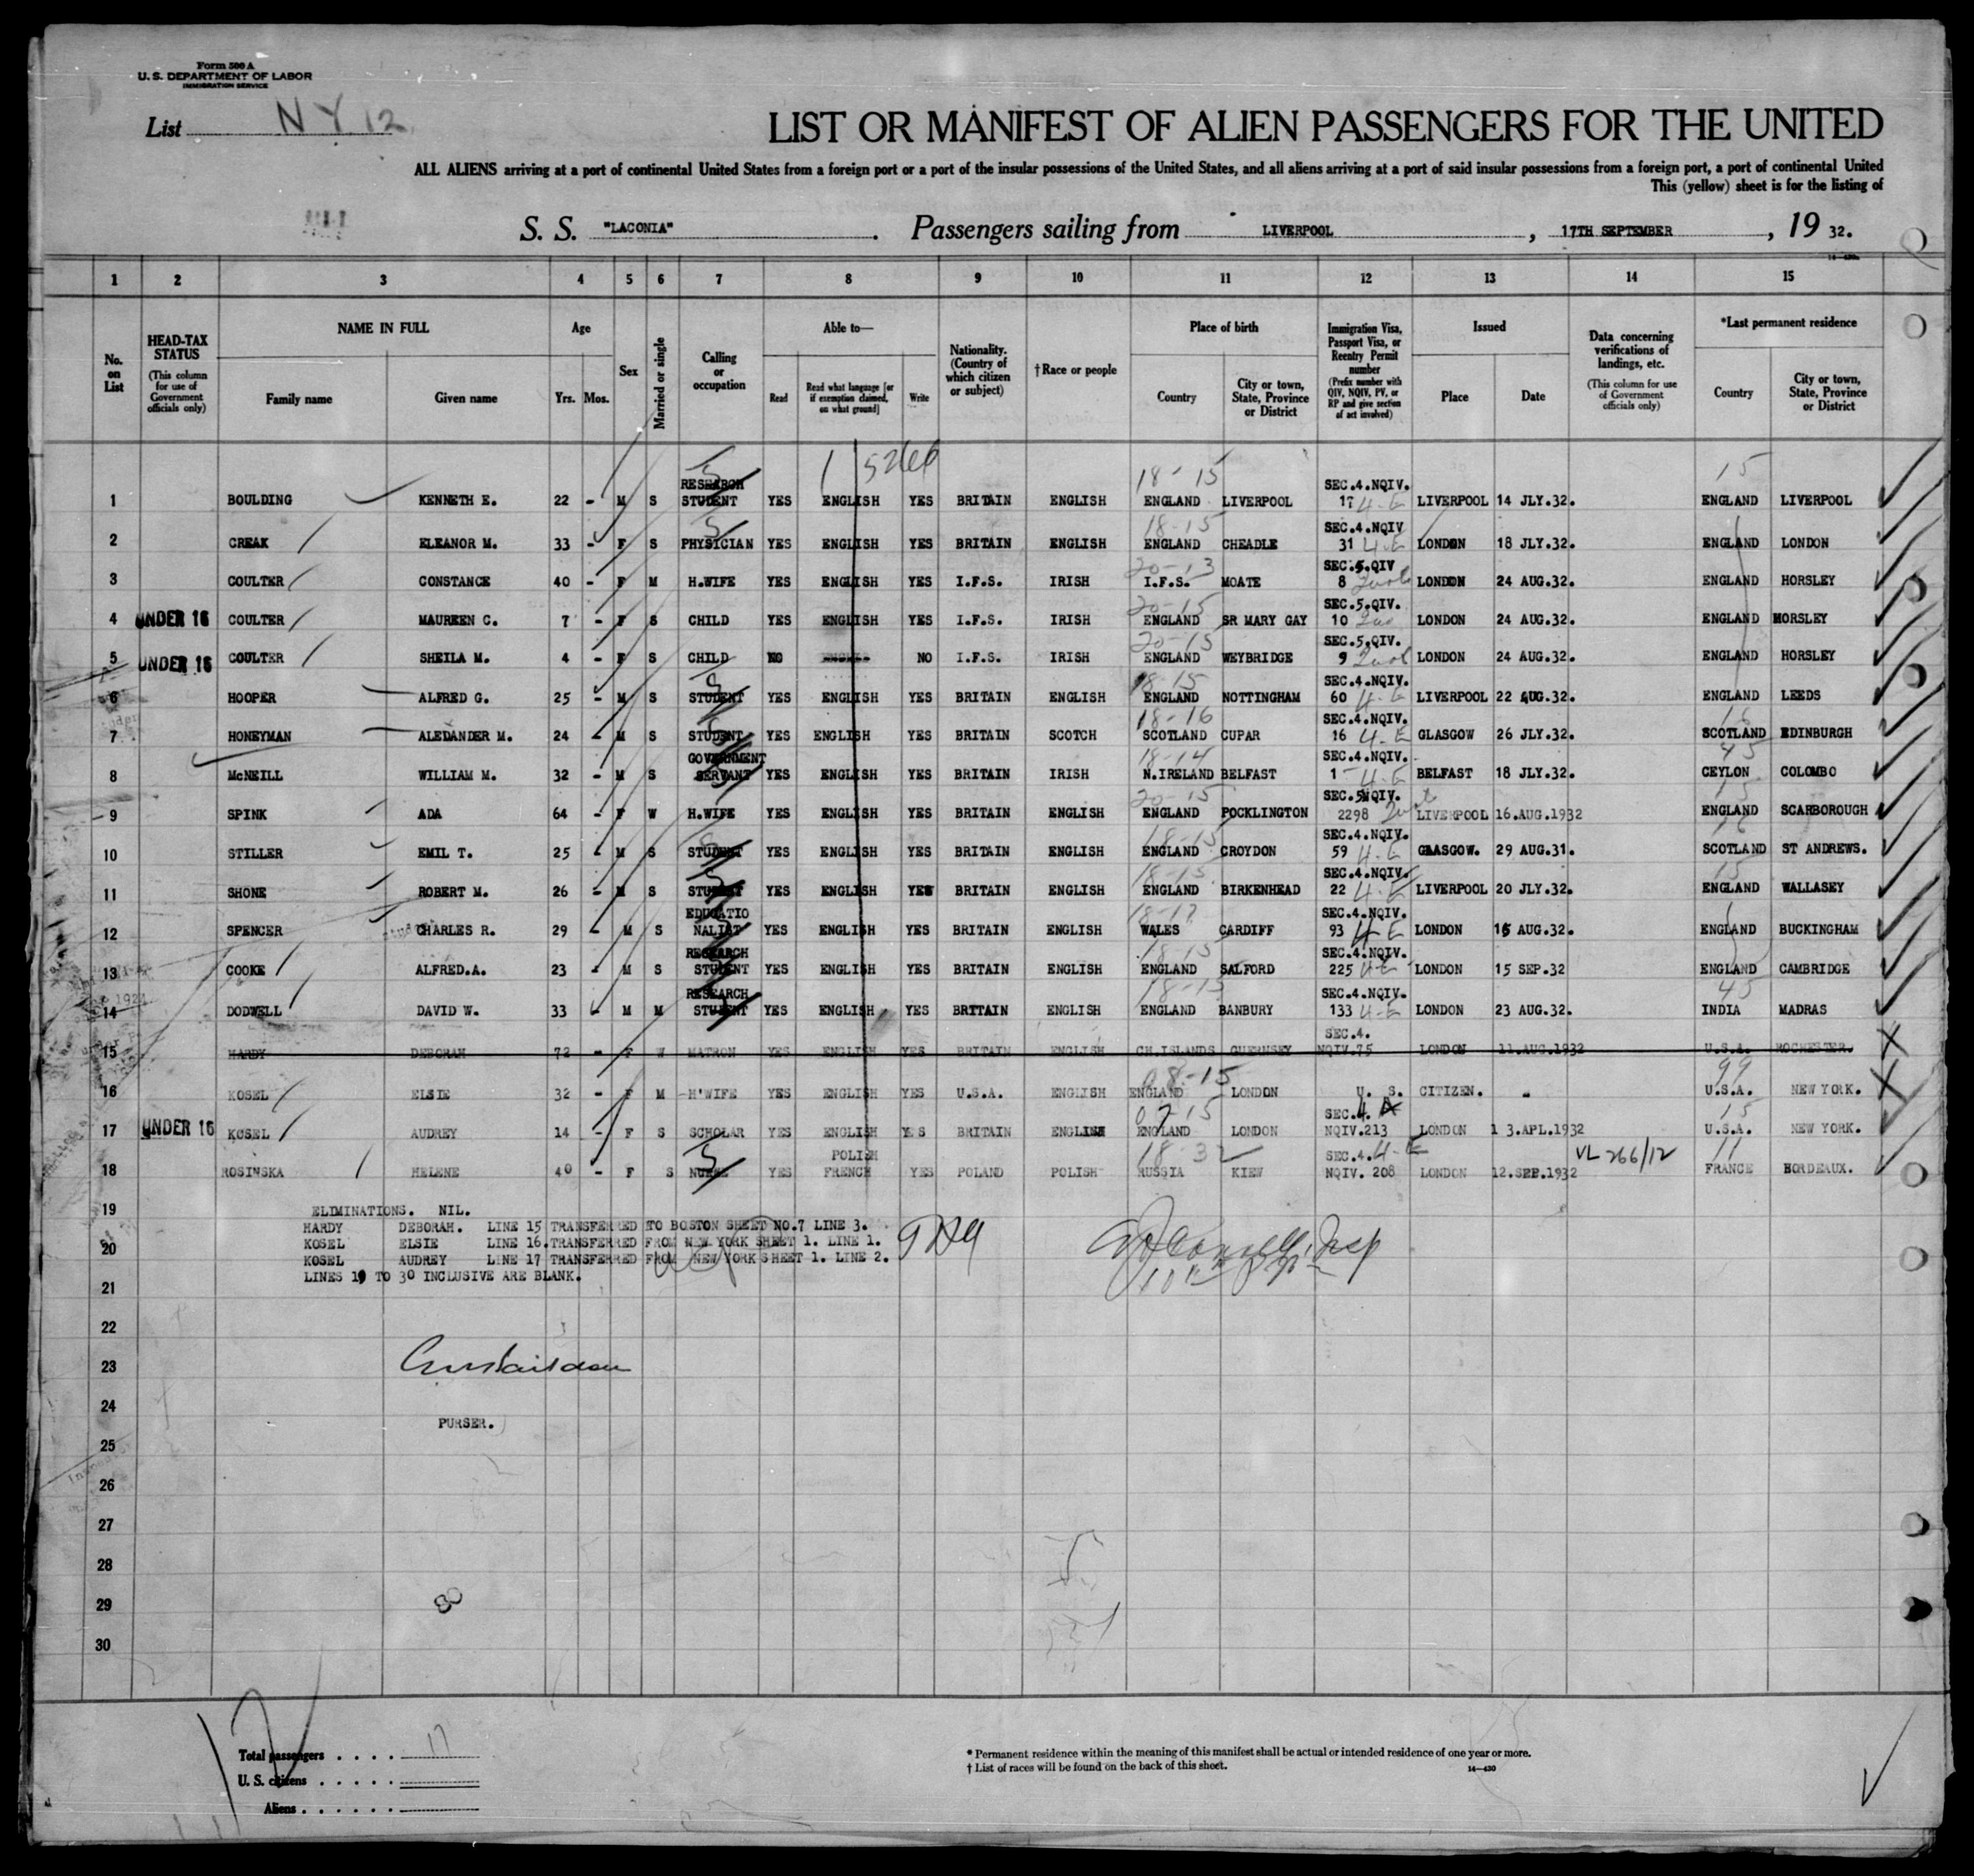 Form 500 A
U. S. DEPARTMENT OF LABOR
IMMIGRATION SERVICE
List NY 12
LIST OR MANIFEST OF ALIEN PASSENGERS FOR THE UNITED
ALL ALIENS arriving at a port of continental United States from a foreign port or a port of the insular possessions of the United States, and all aliens arriving at a port of said insular possessions from a foreign port, a port of continental United
This (yellow) sheet is for the listing of
S. S. "LACONIA". Passengers sailing from LIVERPOOL, 17TH SEPTEMBER, 19 32.
1 2 3 4 5 6 7 8 9 10 11 12 13 14 15
No. on List
HEAD-TAX STATUS (This column for use of Government officials only)
NAME IN FULL Family name Given name
Age Yrs. Mos.
Sex
Married or single
Calling or occupation
Able to— Read Read what language [or if exemption claimed, on what ground] Write
Nationality. (Country of which citizen or subject)
† Race or people
Place of birth Country City or town, State, Province or District
Immigration Visa, Passport Visa, or Reentry Permit number (Prefix number with QIV, NQIV, PV, or RP and give section of act involved)
Issued Place Date
Data concerning verifications of landings, etc. (This column for use of Government officials only)
*Last permanent residence Country City or town, State, Province or District
5266
18-15 15
1 BOULDING KENNETH E. 22 - M S RESEARCH STUDENT YES ENGLISH YES BRITAIN ENGLISH ENGLAND LIVERPOOL SEC.4.NQIV. 17 4-E LIVERPOOL 14 JLY.32. ENGLAND LIVERPOOL
18-15
2 CREAK ELEANOR M. 33 - F S PHYSICIAN YES ENGLISH YES BRITAIN ENGLISH ENGLAND CHEADLE SEC.4.NQIV 31 4-E LONDON 18 JLY.32. ENGLAND LONDON
20-13
3 COULTER CONSTANCE 40 - F M H.WIFE YES ENGLISH YES I.F.S. IRISH I.F.S. MOATE SEC.5.QIV 8 LONDON 24 AUG.32. ENGLAND HORSLEY
20-15
4 UNDER 16 COULTER MAUREEN C. 7 - F S CHILD YES ENGLISH YES I.F.S. IRISH ENGLAND SR MARY GAY SEC.5.QIV. 10 LONDON 24 AUG.32. ENGLAND HORSLEY
20-15
5 UNDER 16 COULTER SHEILA M. 4 - F S CHILD NO NO I.F.S. IRISH ENGLAND WEYBRIDGE SEC.5.QIV. 9 LONDON 24 AUG.32. ENGLAND HORSLEY
18-15
6 HOOPER ALFRED G. 25 - M S STUDENT YES ENGLISH YES BRITAIN ENGLISH ENGLAND NOTTINGHAM SEC.4.NQIV. 60 4-E LIVERPOOL 22 AUG.32. ENGLAND LEEDS
18-16 16
7 HONEYMAN ALEDANDER M. 24 - M S STUDENT YES ENGLISH YES BRITAIN SCOTCH SCOTLAND CUPAR SEC.4.NQIV. 16 4-E GLASGOW 26 JLY.32. SCOTLAND EDINBURGH
18-14 45
8 McNEILL WILLIAM M. 32 - M S GOVERNMENT SERVANT YES ENGLISH YES BRITAIN IRISH N.IRELAND BELFAST SEC.4.NQIV. 1 4-E BELFAST 18 JLY.32. CEYLON COLOMBO
20-15 15
9 SPINK ADA 64 - F W H.WIFE YES ENGLISH YES BRITAIN ENGLISH ENGLAND POCKLINGTON SEC.5NQIV. 2298 LIVERPOOL 16.AUG.1932 ENGLAND SCARBOROUGH
18-15 16
10 STILLER EMIL T. 25 - M S STUDENT YES ENGLISH YES BRITAIN ENGLISH ENGLAND CROYDON SEC.4.NQIV. 59 4-E GLASGOW. 29 AUG.31. SCOTLAND ST ANDREWS.
18-15 15
11 SHONE ROBERT M. 26 - M S STUDENT YES ENGLISH YES BRITAIN ENGLISH ENGLAND BIRKENHEAD SEC.4.NQIV. 22 4-E LIVERPOOL 20 JLY.32. ENGLAND WALLASEY
18-17
12 SPENCER CHARLES R. 29 - M S EDUCATIO NALIST YES ENGLISH YES BRITAIN ENGLISH WALES CARDIFF SEC.4.NQIV. 93 4-E LONDON 15 AUG.32. ENGLAND BUCKINGHAM
18-15
13 COOKE ALFRED.A. 23 - M S RESEARCH STUDENT YES ENGLISH YES BRITAIN ENGLISH ENGLAND SALFORD SEC.4.NQIV. 225 4-E LONDON 15 SEP.32 ENGLAND CAMBRIDGE
18-15 45
14 DODWELL DAVID W. 33 - M M RESEARCH STUDENT YES ENGLISH YES BRITAIN ENGLISH ENGLAND BANBURY SEC.4.NQIV. 133 4-E LONDON 23 AUG.32. INDIA MADRAS
15 HARDY DEBORAH 72 - F W MATRON YES ENGLISH YES BRITAIN ENGLISH CH.ISLANDS GUERNSEY SEC.4. NQIV.75 LONDON 11.AUG.1932 U.S.A. ROCHESTER.
08-15 99
16 KOSEL ELSIE 32 - F M H'WIFE YES ENGLISH YES U.S.A. ENGLISH ENGLAND LONDON U. S. CITIZEN. U.S.A. NEW YORK.
07-15 15
17 UNDER 16 KOSEL AUDREY 14 - F S SCHOLAR YES ENGLISH YES BRITAIN ENGLISH ENGLAND LONDON SEC.4. NQIV.213 LONDON 1 3.APL.1932 U.S.A. NEW YORK.
18-32 11
18 ROSINSKA HELENE 40 - F S YES POLISH FRENCH YES POLAND POLISH RUSSIA KIEW SEC.4. 4-E NQIV. 208 LONDON 12.SEP.1932 VL 266/12 FRANCE BORDEAUX.
19 ELIMINATIONS. NIL.
HARDY DEBORAH. LINE 15 TRANSFERRED TO BOSTON SHEET NO.7 LINE 3.
20 KOSEL ELSIE LINE 16.TRANSFERRED FROM NEW YORK SHEET 1. LINE 1.
KOSEL AUDREY LINE 17 TRANSFERRED FROM NEW YORK SHEET 1. LINE 2.
LINES 19 TO 30 INCLUSIVE ARE BLANK.
21
22
23
24
PURSER.
25
26
27
28
29
30
Total passengers . . . . 17
U. S. citizens . . . . .
Aliens . . . . . .
* Permanent residence within the meaning of this manifest shall be actual or intended residence of one year or more.
† List of races will be found on the back of this sheet.
14—430